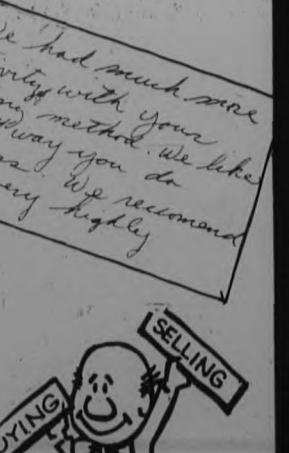 e had much more
ivity with your
method. We like
way you do
s. We recomend
ery highly
SELLING
UYING